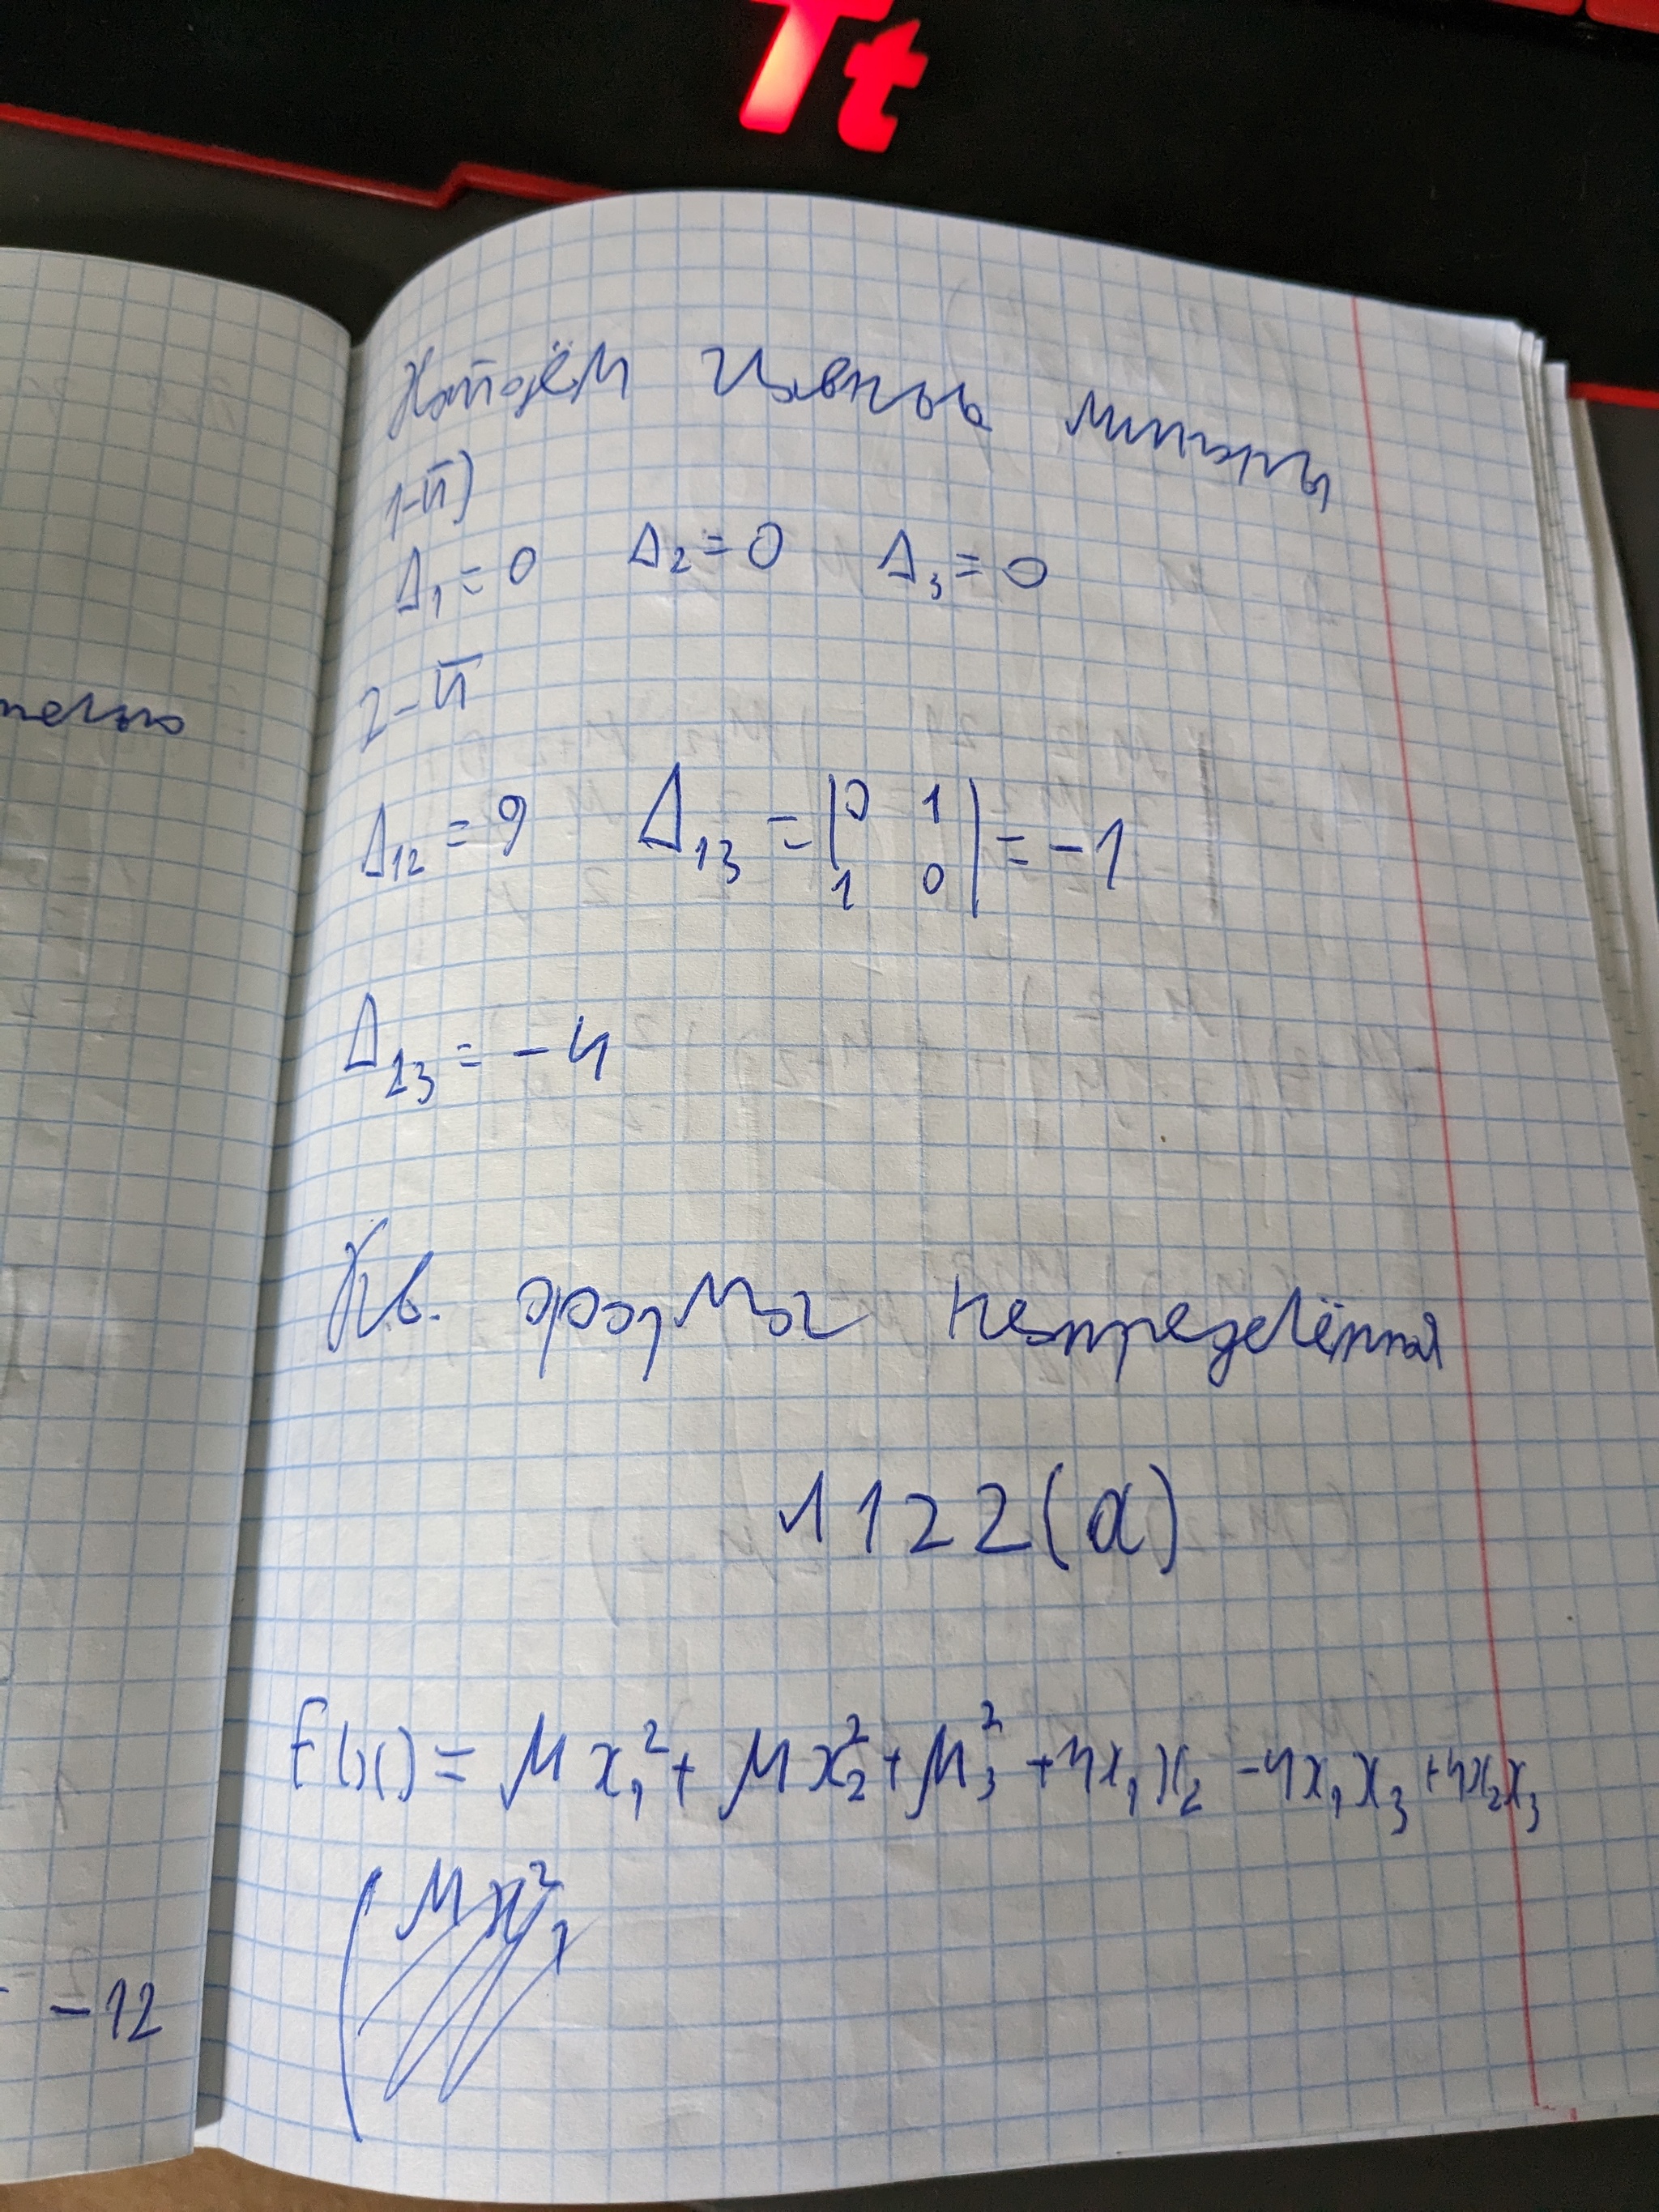 Tt
Найдём главные миноры
1-й)
Δ₁ = 0 Δ₂ = 0 Δ₃ = 0
2-й
Δ₁₂ = 9 Δ₁₃ = |0 1| = -1
|1 0|
Δ₂₃ = -4
Кв. форма неопределённая
1122(а)
F(x) = μx₁² + μx₂² + μ₃² + 4x₁x₂ - 4x₁x₃ + 4x₂x₃
-12